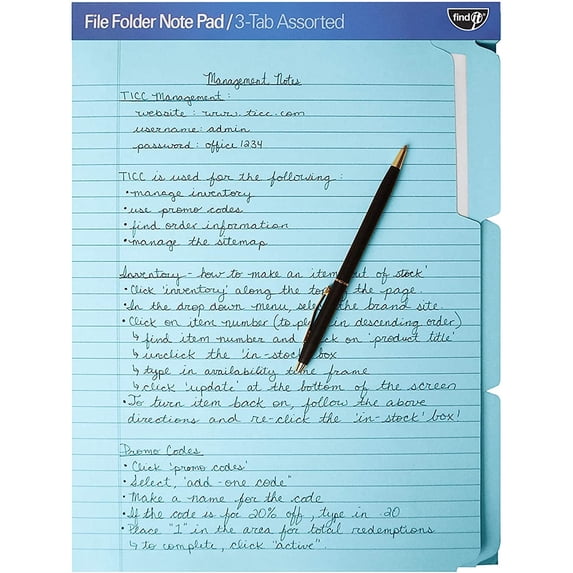 File Folder Note Pad / 3-Tab Assorted
find it
Management Notes
TICC Management:
website: www.ticc.com
username: admin
password: office 1234
TICC is used for the following:
• manage inventory
• use promo codes
• find order information
• manage the sitemap
Inventory - how to make an item out of stock'
• Click 'inventory' along the top of the page.
• In the drop down menu, select the brand site.
• Click on item number (to place in descending order)
↳ find item number and click on 'product title'
↳ unclick the 'in-stock' box
↳ type in availability time frame
↳ click 'update' at the bottom of the screen
• To turn item back on, follow the above
directions and re-click the 'in-stock' box!
Promo Codes
• Click 'promo codes'
• Select, 'add-one code"
• Make a name for the code
• If the code is for 20% off, type in .20
• Place "1" in the area for total redemptions
↳ to complete, click "active".